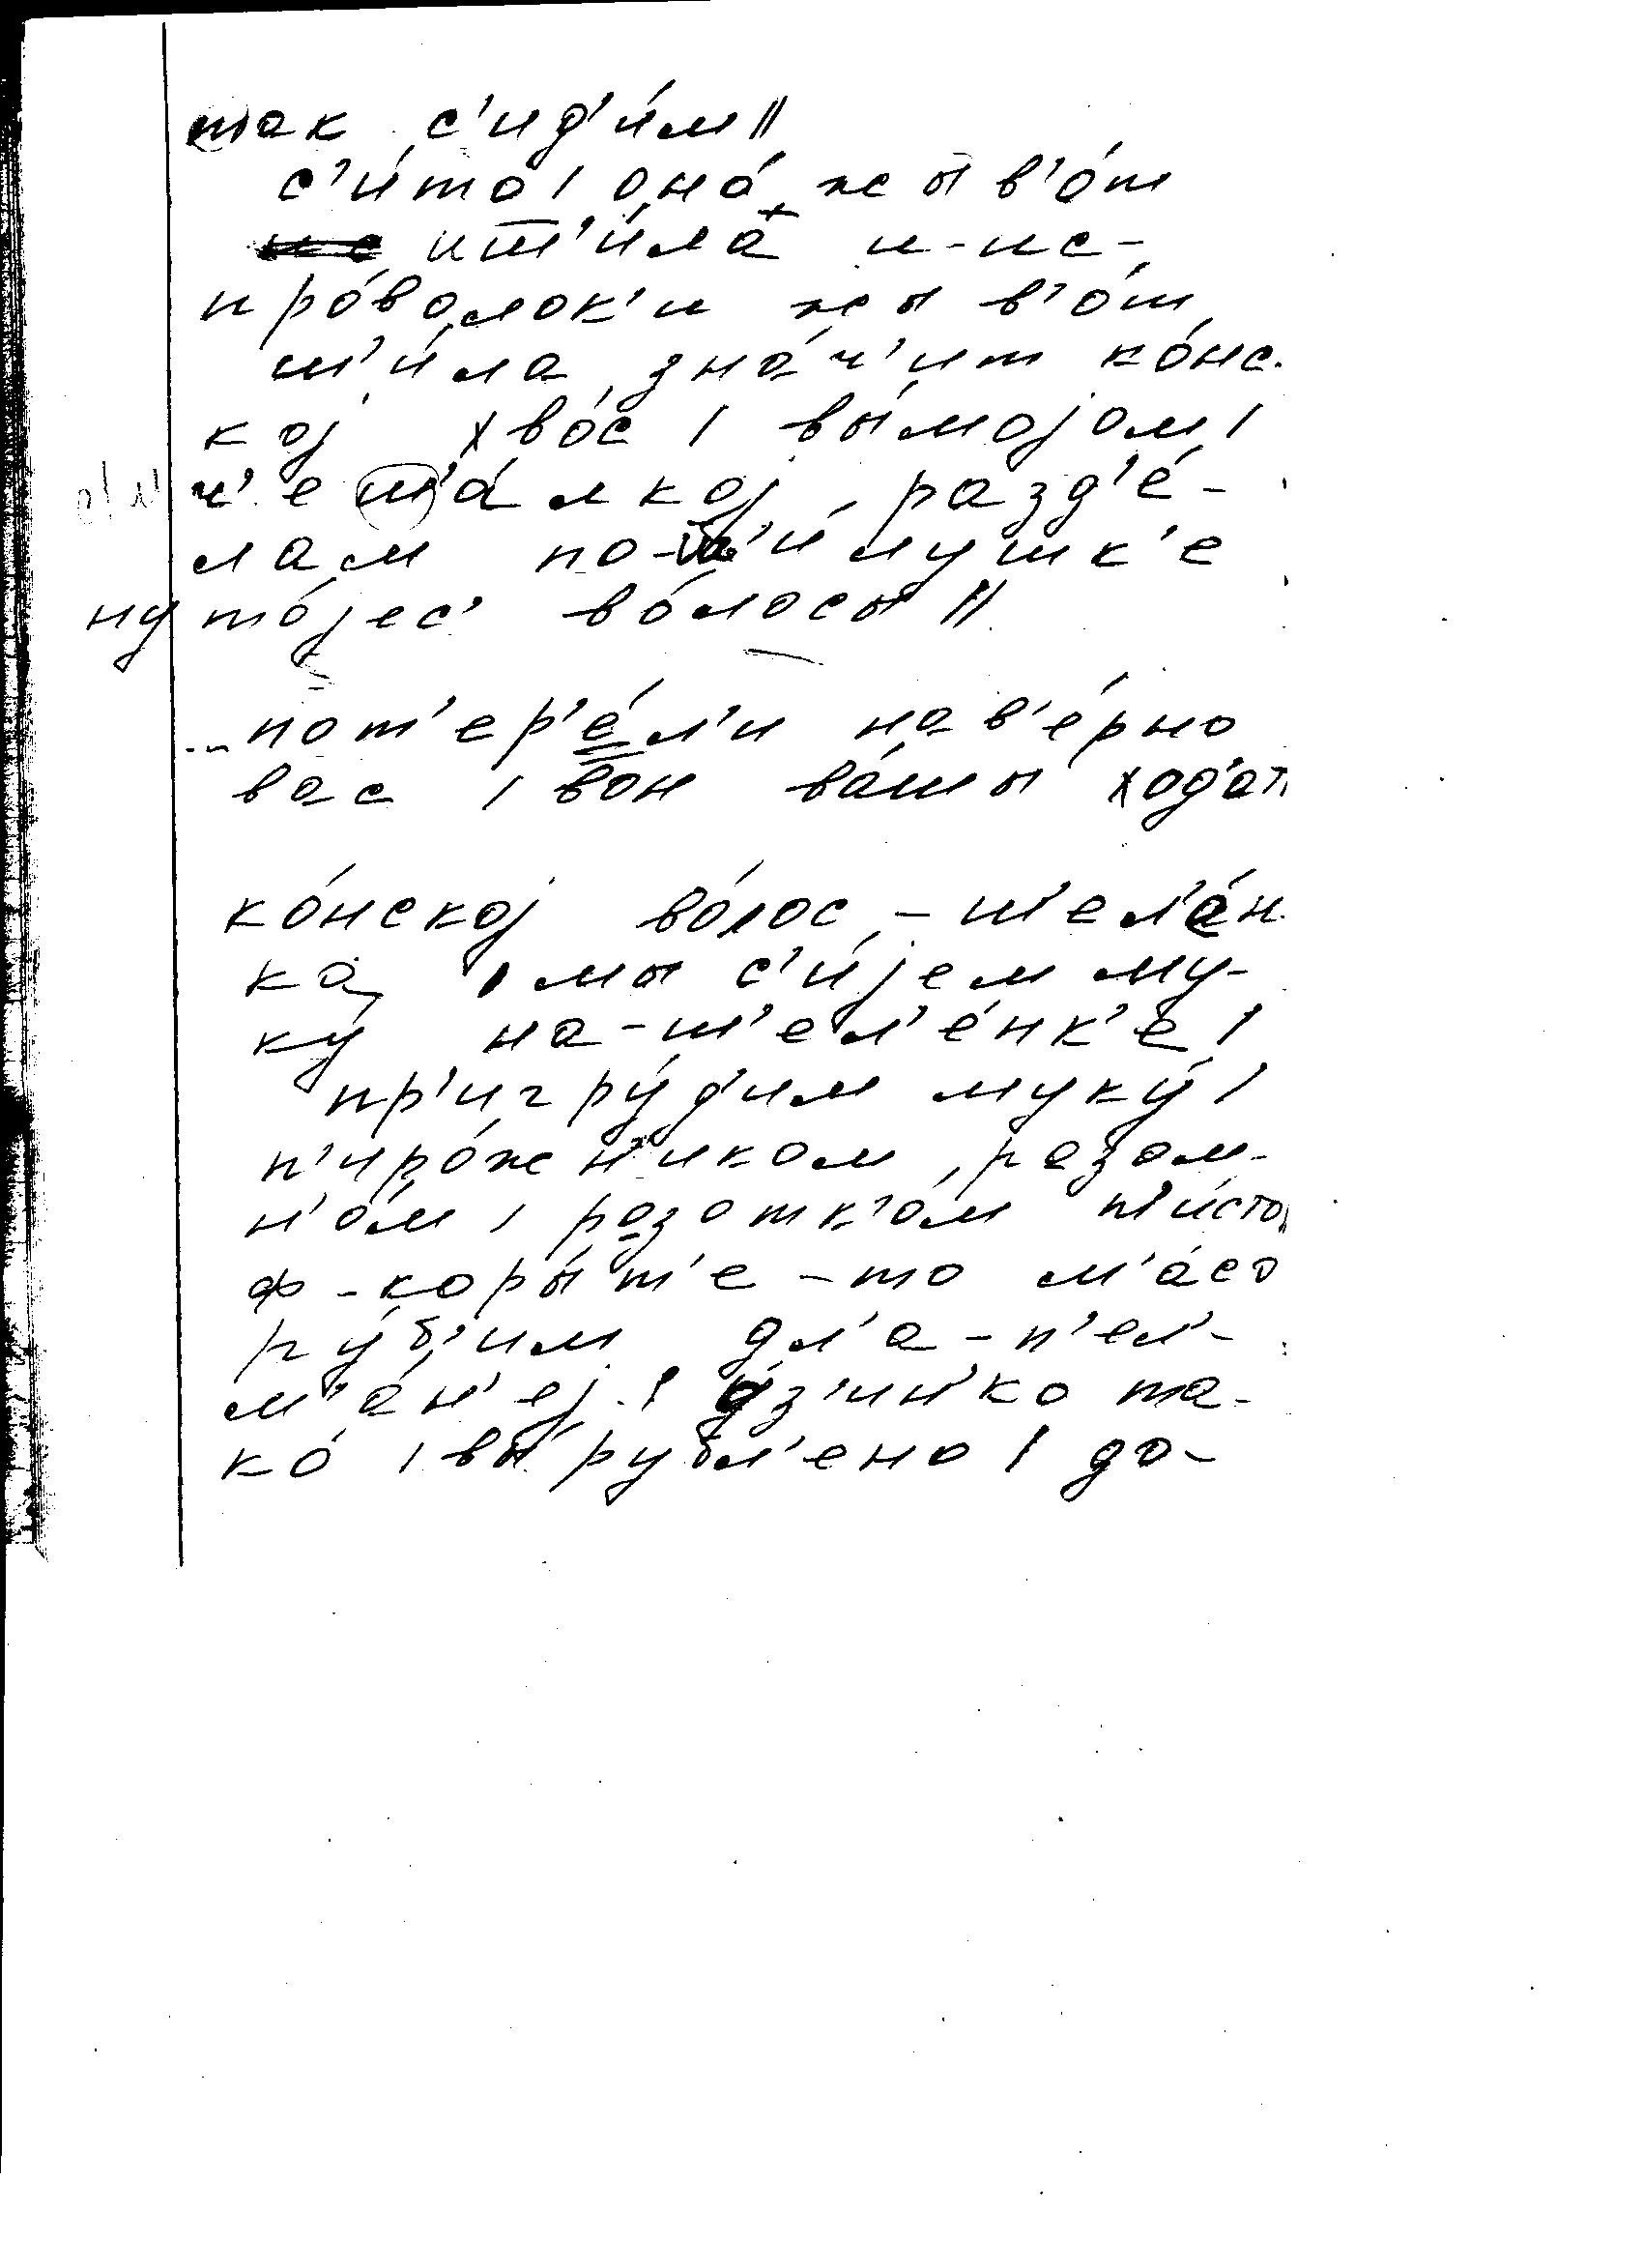 так с'ид'и́м ||
с'и́то | она́ жыв'о́т
ишш'и́ла и-ис-
про́волок'и жыв'о́т
ш'и́ла зна́ч'ит ко́нс-
кој хво́с | вы́мојом |
ч'еш'а́лкој разд'е́-
лам по-ш'и́лушк'е
ну то́јес' во́лосы ||
...пот'ер'е́л'и нав'е́рно
вас | вон ва́шы ход'ат
ко́нској во́лос - ш'ел'а́н-
ка | мы с'и́јем му-
ку́ на-ш'ел'е́нк'е |
пр'игру́д'им муку́ |
п'иро́жн'иком разом-
н'о́м | розотк'о́м п'и́сто
ф-коры́т'е-то м'а́со
ру́б'им дл'а-п'ел'-
м'а́н'еј | у́з'ин'ко та-
ко́ | вы́рубл'ено | до-